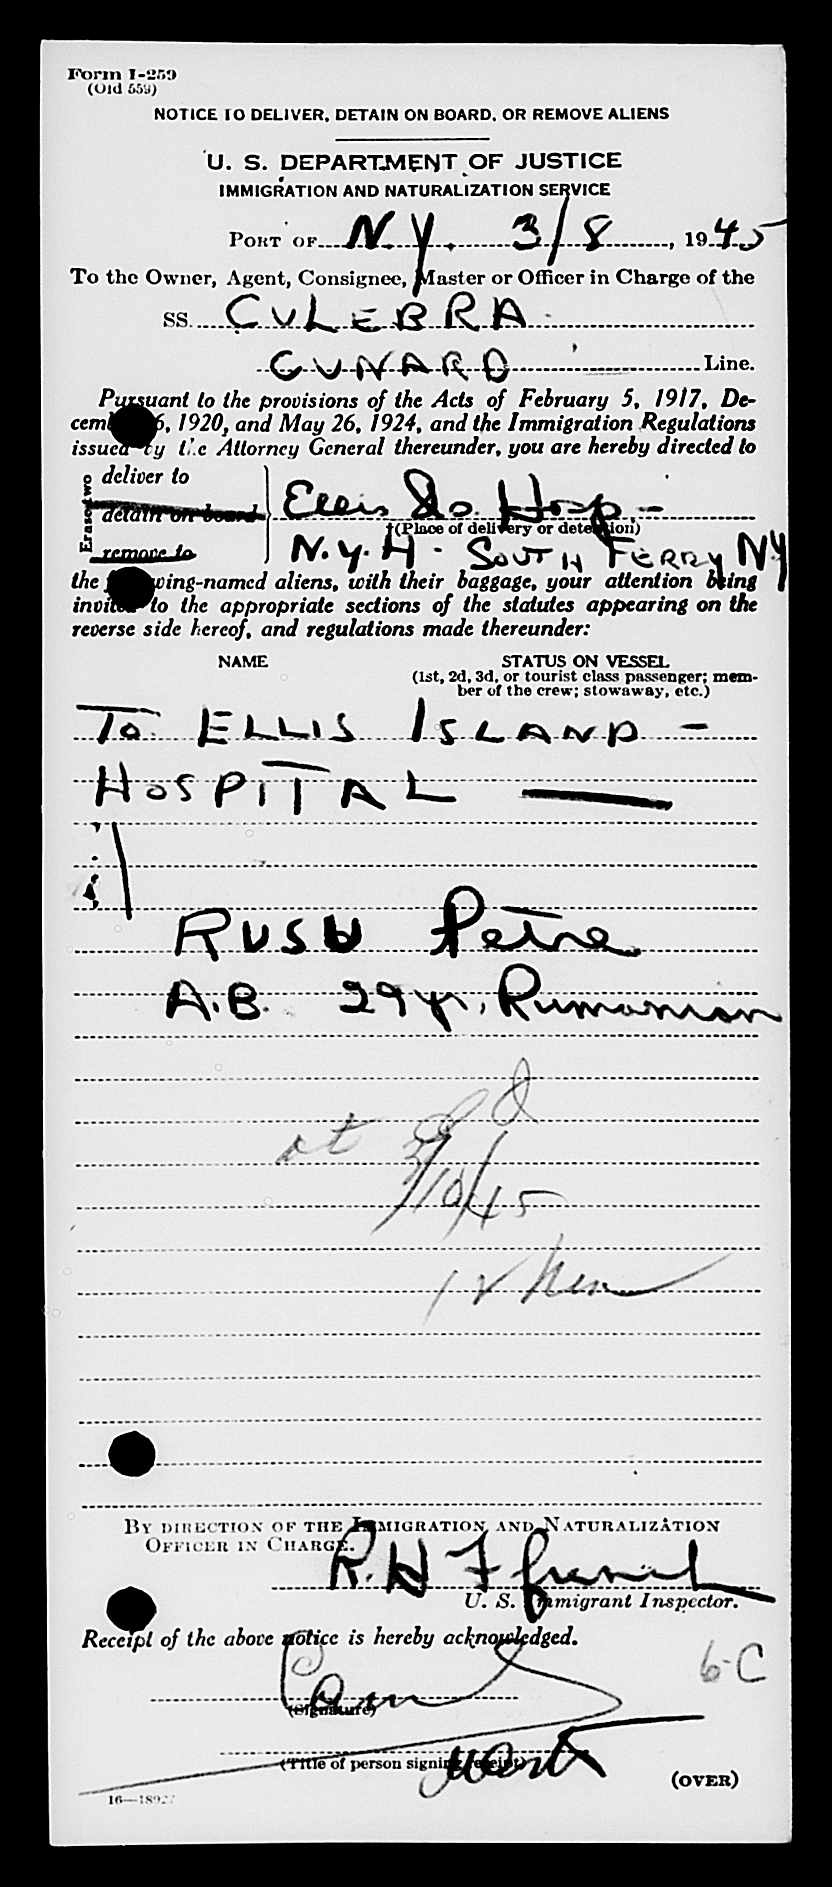 Form I-259
(Old 559)
NOTICE TO DELIVER, DETAIN ON BOARD, OR REMOVE ALIENS
U. S. DEPARTMENT OF JUSTICE
IMMIGRATION AND NATURALIZATION SERVICE
PORT OF N.Y. 3/8, 1945
To the Owner, Agent, Consignee, Master or Officer in Charge of the
SS. CULEBRA
CUNARD Line.
Pursuant to the provisions of the Acts of February 5, 1917, De-
cem 6, 1920, and May 26, 1924, and the Immigration Regulations
issued by the Attorney General thereunder, you are hereby directed to
Erase two
deliver to
detain on board
remove to
Ellis Is. Hosp -
†(Place of delivery or detention)
N.Y.H - SOUTH FERRY NY
the wing-named aliens, with their baggage, your attention being
invited to the appropriate sections of the statutes appearing on the
reverse side hereof, and regulations made thereunder:
NAME STATUS ON VESSEL
(1st, 2d, 3d, or tourist class passenger; mem-
ber of the crew; stowaway, etc.)
To ELLIS ISLAND -
HOSPITAL —
RUSU Petre
A.B. 29 yr, Rumanian
at
3/10/45
12
BY DIRECTION OF THE IMMIGRATION AND NATURALIZATION
OFFICER IN CHARGE.
R. H
U. S. Immigrant Inspector.
Receipt of the above notice is hereby acknowledged.
6-C
(Signature)
(Title of person signing receipt)
(OVER)
16—18927